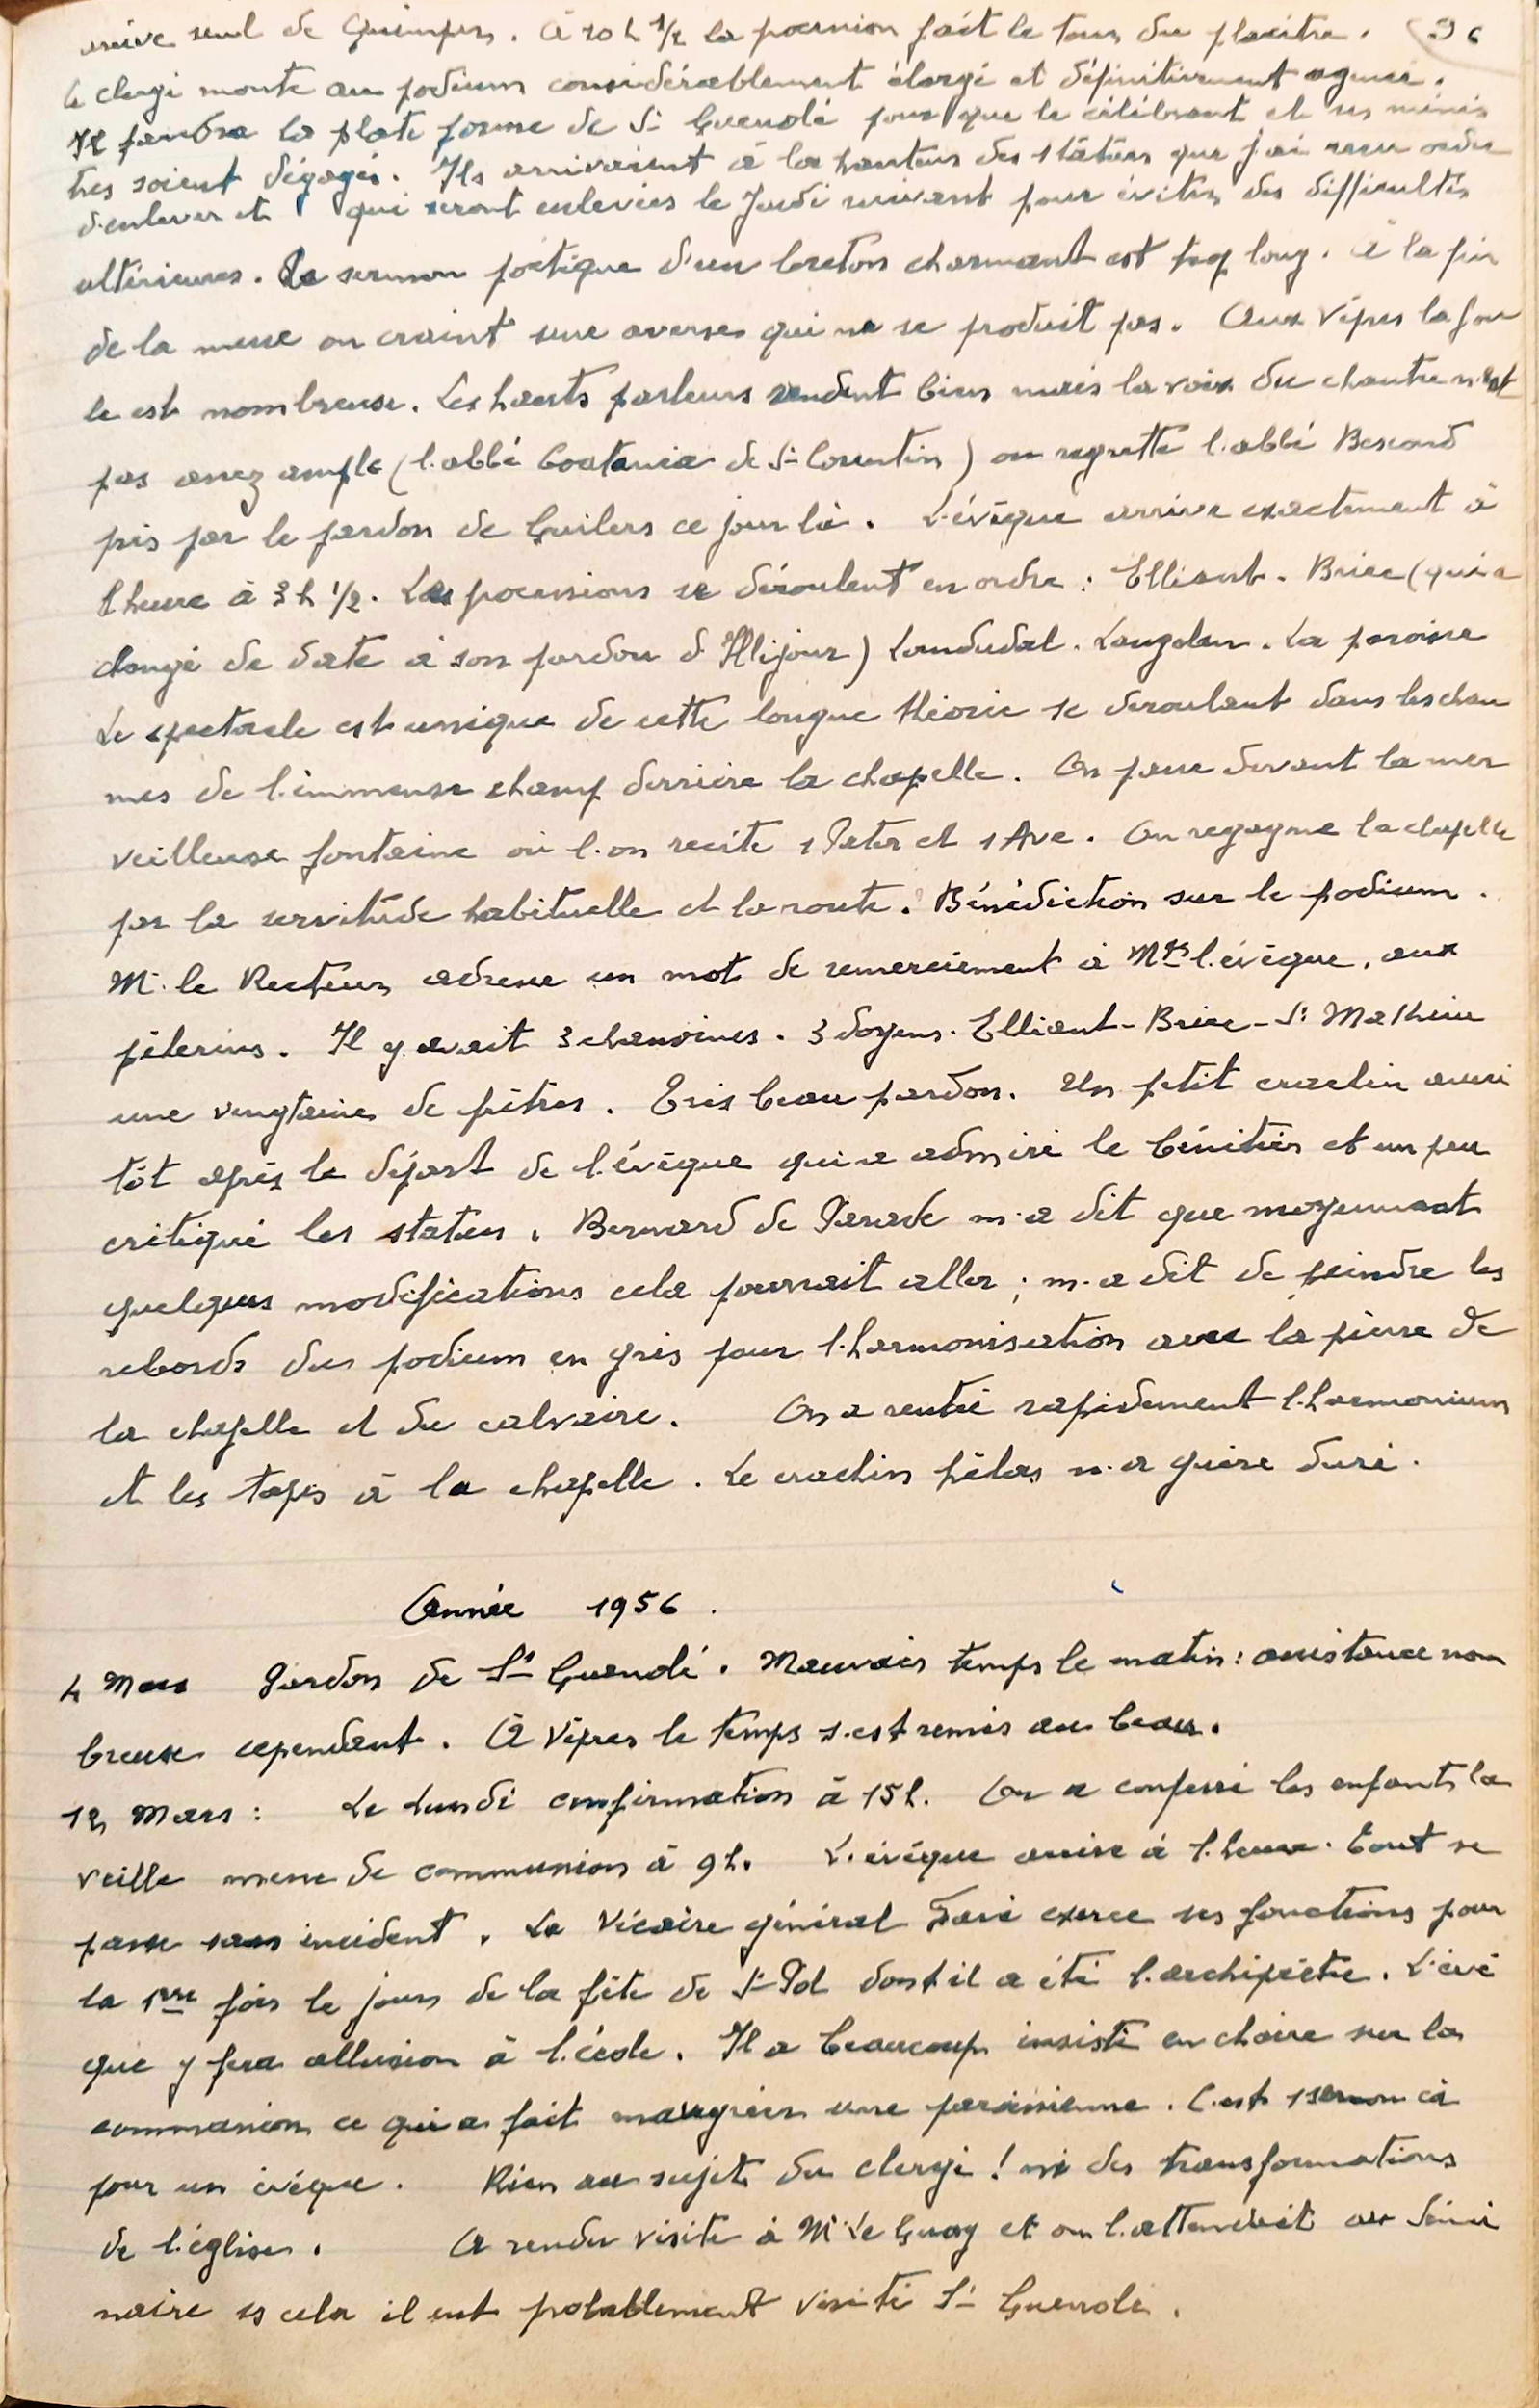 arrive seul de Quimper. À 10 h 1/2 la procession fait le tour du placître. 96
le clergé monte au podium considérablement élargi et définitivement
Il faudra la plate forme de St Guenolé pour que le célébrant et ses minis
tres soient dégagés. Ils arrivaient à la hauteur des statues que j'ai reçu ordre
d'enlever et qui seront enlevées le Jeudi suivant pour éviter des difficultés
ultérieures. Le sermon poétique d'un breton charmant est trop long. À la fin
de la messe on craint une averse qui ne se produit pas. Aux Vêpres la fou
le est nombreuse. Les hauts parleurs rendent bien mais la voix du chantre n'est
pas assez ample (l'abbé de St Corentin) on regrette l'abbé Bescond
pris par le pardon de Guilers ce jour là. L'évêque arrive exactement à
l'heure à 3 h 1/2. Les processions se déroulent en ordre : Elliant. Briec (qui a
changé de date à son pardon d'Illijour) Landudal. Langolen. La paroisse
Le spectacle est unique de cette longue théorie se deroulant dans les chau
mes de l'immense champ derrière la chapelle. On passe devant la mer
veilleuse fontaine où l'on recite 1 Pater et 1 Ave. On regagne la chapelle
par la servitude habituelle et la route. Bénédiction sur le podium.
Mr le Recteur adresse un mot de remerciement à Mgr l'évêque, aux
pèlerins. Il y avait 3 chanoines. 3 doyens. Elliant - Briec - St Mathieu
une vingtaine de prêtres. Très beau pardon. Un petit crachin aussi
tôt après le départ de l'évêque qui a admiré le bénitier et un peu
critiqué les statues. Bernard de Parade m'a dit que moyennant
quelques modifications cela pourrait aller ; m'a dit de peindre les
rebords du podium en gris pour l'harmonisation avec la pierre de
la chapelle et du calvaire. On a rentré rapidement l'harmonium
et les tapis à la chapelle. Le crachin hélas n'a guère duré.
Année 1956.
4 Mars Pardon de St Guenolé. Mauvais temps le matin : assistance nom
breuse cependant. À Vêpres le temps s'est remis au beau.
12 Mars : Le Lundi confirmation à 15 h. On a confessé les enfants la
veille messe de communion à 9 h. L'évêque arrive à l'heure. Tout se
passe sans incident. Le Vicaire général Favé exerce ses fonctions pour
la 1ere fois le jour de la fête de St Pol dont il a été l'archiprêtre. L'évê
que y fera allusion à l'école. Il a beaucoup insisté en chaire sur la
communion ce qui a fait maugréer une paroissienne. C'est 1 sermon çà
pour un évêque. Rien au sujet du clergé ! ni des transformations
de l'église. A rendu visite à Mr Le Guay et on l'attendait au Sémi
naire ss cela il eut probablement visité St Guenolé.